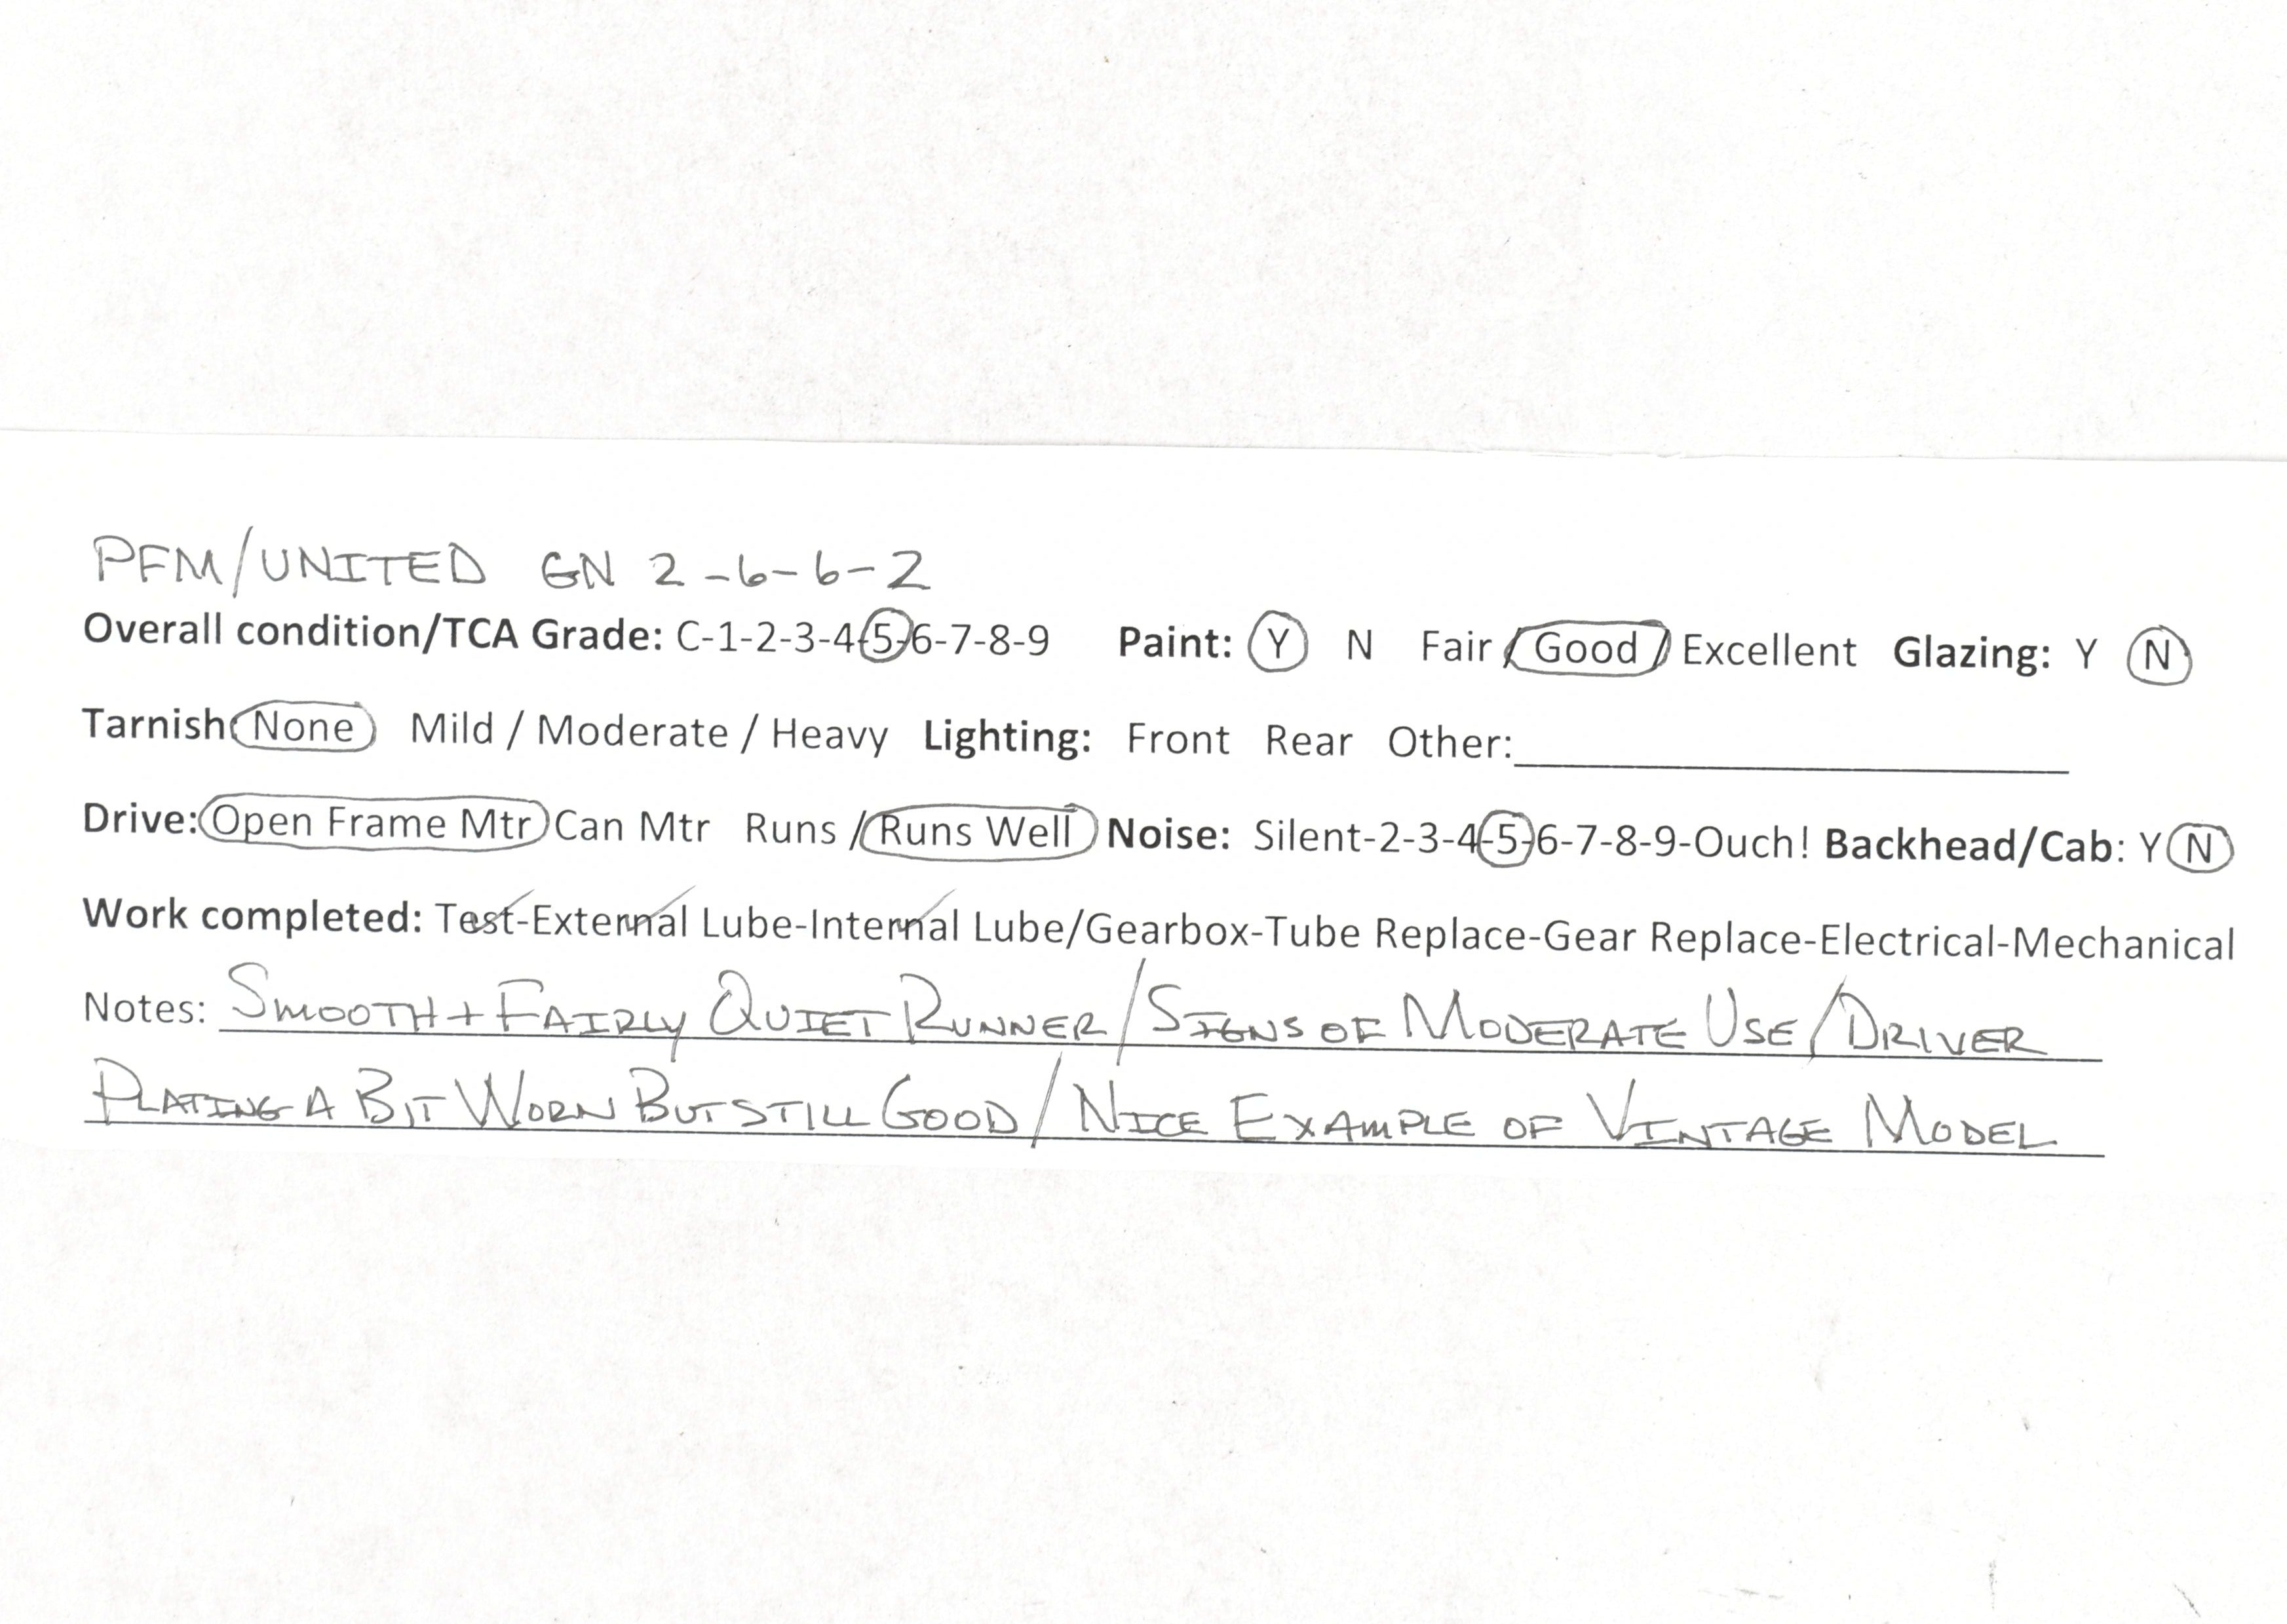 PFM/UNITED GN 2-6-6-2
Overall condition/TCA Grade: C-1-2-3-4-5-6-7-8-9 Paint: Y N Fair / Good / Excellent Glazing: Y N
Tarnish None Mild / Moderate / Heavy Lighting: Front Rear Other:
Drive: Open Frame Mtr Can Mtr Runs / Runs Well Noise: Silent-2-3-4-5-6-7-8-9-Ouch! Backhead/Cab: Y N
Work completed: Test-External Lube-Internal Lube/Gearbox-Tube Replace-Gear Replace-Electrical-Mechanical
Notes: SMOOTH + FAIRLY QUIET RUNNER / SIGNS OF MODERATE USE / DRIVER
PLATING A BIT WORN BUT STILL GOOD / NICE EXAMPLE OF VINTAGE MODEL